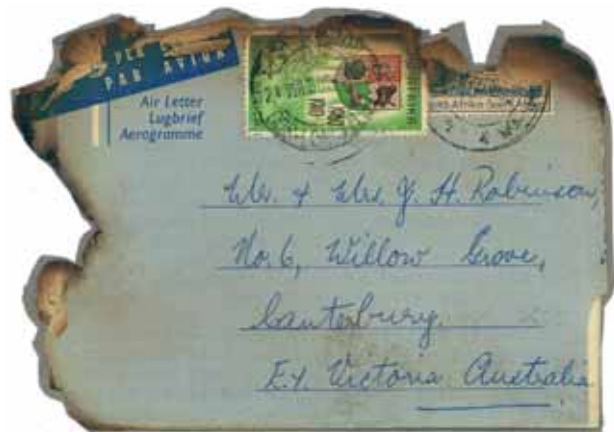 PER
PAR AVION
Air Letter
Lugbrief
Aerogramme
Mr. & Mrs. J. H. Robinson,
No. 6, Willow Grove,
Canterbury.
E.7. Victoria. Australia